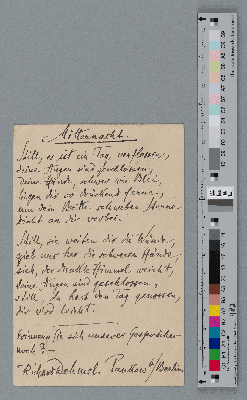 Mitternacht.
Still, es ist ein Tag verflossen;
deine Augen sind geschlossen,
deine Hände, schwer wie Blei,
liegen dir so drückend ferne,
um dein Bette schweben Sterne,
dicht an dir vorbei.
Still, sie weiten dir die Wände:
gieb uns her die schweren Hände,
sieh, der dunkle Himmel weicht,
deine Augen sind geschlossen,
still, du hast den Tag genossen,
dir wird leicht.
Erinnern Sie sich unserer Gespräche
noch?
Richard Dehmel. Pankow b/Berlin.